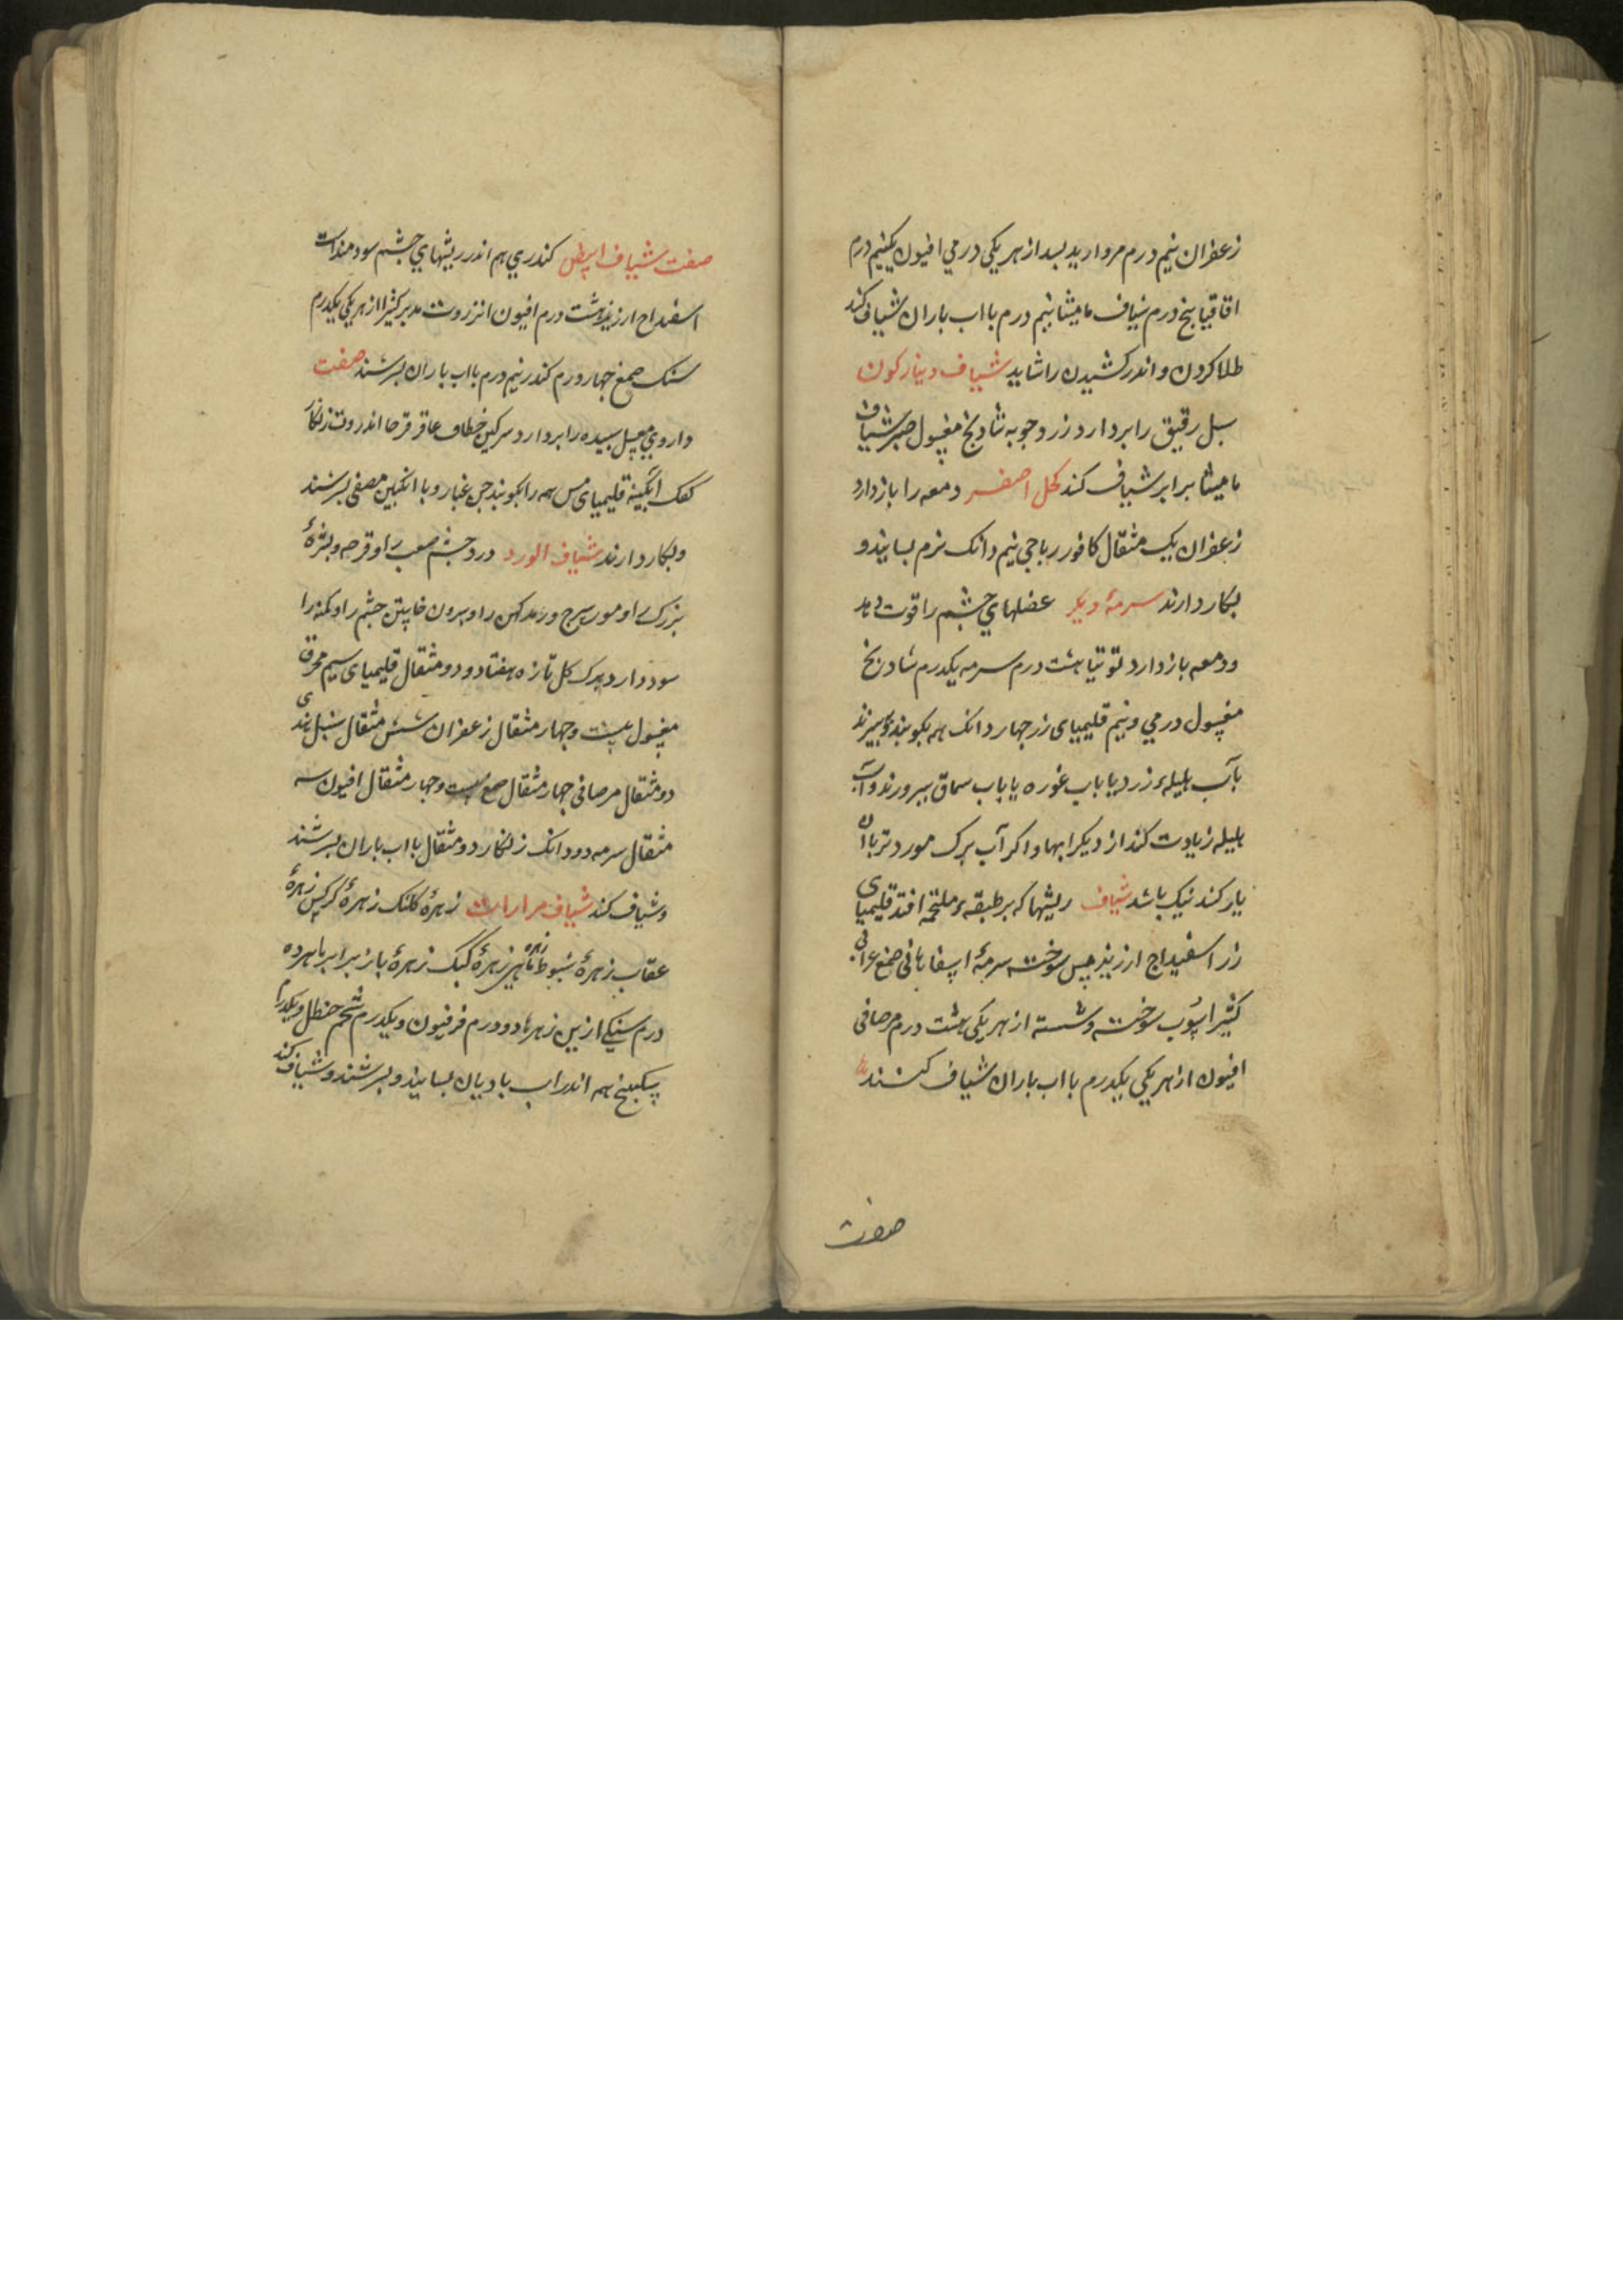 زعفران نیم درم مروارید بسد از هر یکی درمی افیون یکنیم درم
اقاقیا پنج درم شیاف مامیثا نیم درم بااب باران شیاف کند
طلا کردن و اندر کشیدن را شاید شیاف دینارکون
سبل رقیق را بردارد زردجوبه شادنج مغسول صبر شیاف
مامیثا برابر شیاف کند کحل اصفر دمعه را بازدارد
زعفران یک مثقال کافور رباحی نیم دانک نرم بسایند و
بکار دارند سرمهٔ دیکر عضلهای چشم را قوت دهد
و دمعه بازدارد توتیا هشت درم سرمه یکدرم شادنج
مغسول درمی و نیم قلیمیای زر جهار دانک همه بکوبند و ببیزند
بآب هلیلهء زرد یا باب غوره یا باب سماق بپرورند و آب
هلیله زیادت کند از دیکر ابها و اکر آب برک مورد تر باآن
یار کند نیک باشد شیاف ریشها که بر طبقهء ملتحمه افتد قلیمیای
زر اسفیداج ارزیز مس سوخته سرمهٔ اسپاهانی صمغ عرابی
کثیرا سرب سوخته و شسته از هر یکی هشت درم مر صافی
افیون از هر یکی یکدرم بااب باران شیاف کنند
صفت
صفت شیاف ابیض کندری هم اندر ریشهای چشم سودمند است
اسفیداج ارزیز هشت درم افیون انزروت مدبر کثیرا از هر یکی یکدرم
سنک صمغ جهار درم کندر نیم درم بااب باران بسرشند صفت
داروی سبل سپیده را بردارد سرکین خطاف عاقرقرحا اندروت زنکار
کفک آبکینه قلیمیای مس همه را بکوبند جن غبار و با انکبین مصفی بسرشند
و بکار دارند شیاف الورد درد چشم صعب را و قرحه و بثرهٔ
بزرک را و مورسرج و رمد کهن را و بیرون خاستن چشم را و کمنه را
سود دارد برک کل تازه هفتاد و دو مثقال قلیمیای سیم محرق
مغسول بیست و جهار مثقال زعفران شش مثقال سنبل هندی
دو مثقال مر صافی جهار مثقال صمغ بیست و جهار مثقال افیون سه
مثقال سرمه دو دانک زنکار دو مثقال بااب باران بسرشند
و شیاف کند شیاف مرارات زهرهٔ کلنک زهرهٔ کرکس زهرهٔ
عقاب زهرهٔ شبوط زهره ماهیز زهرهٔ کبک زهرهٔ باز برابر با هر ده
درم سنکی ازین زهرها دو درم فرفیون و یکدرم شحم حنظل و یکدرم
سکبینج هم اندر اب بادیان بسایند و بسرشند و شیاف کند